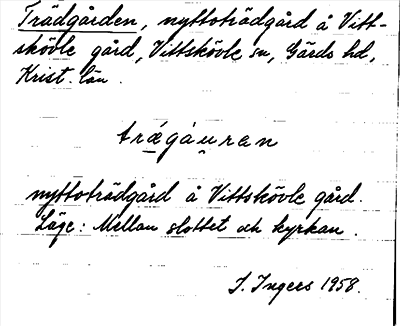 Trädgården, nyttoträdgård å Vitt-
skövle gård, Vittskövle sn, Gärds hd,
Krist. län.
trǽgȧu̯ran
nyttoträdgård å Vittskövle gård.
Läge: Mellan slottet och kyrkan.
I. Ingers 1958.